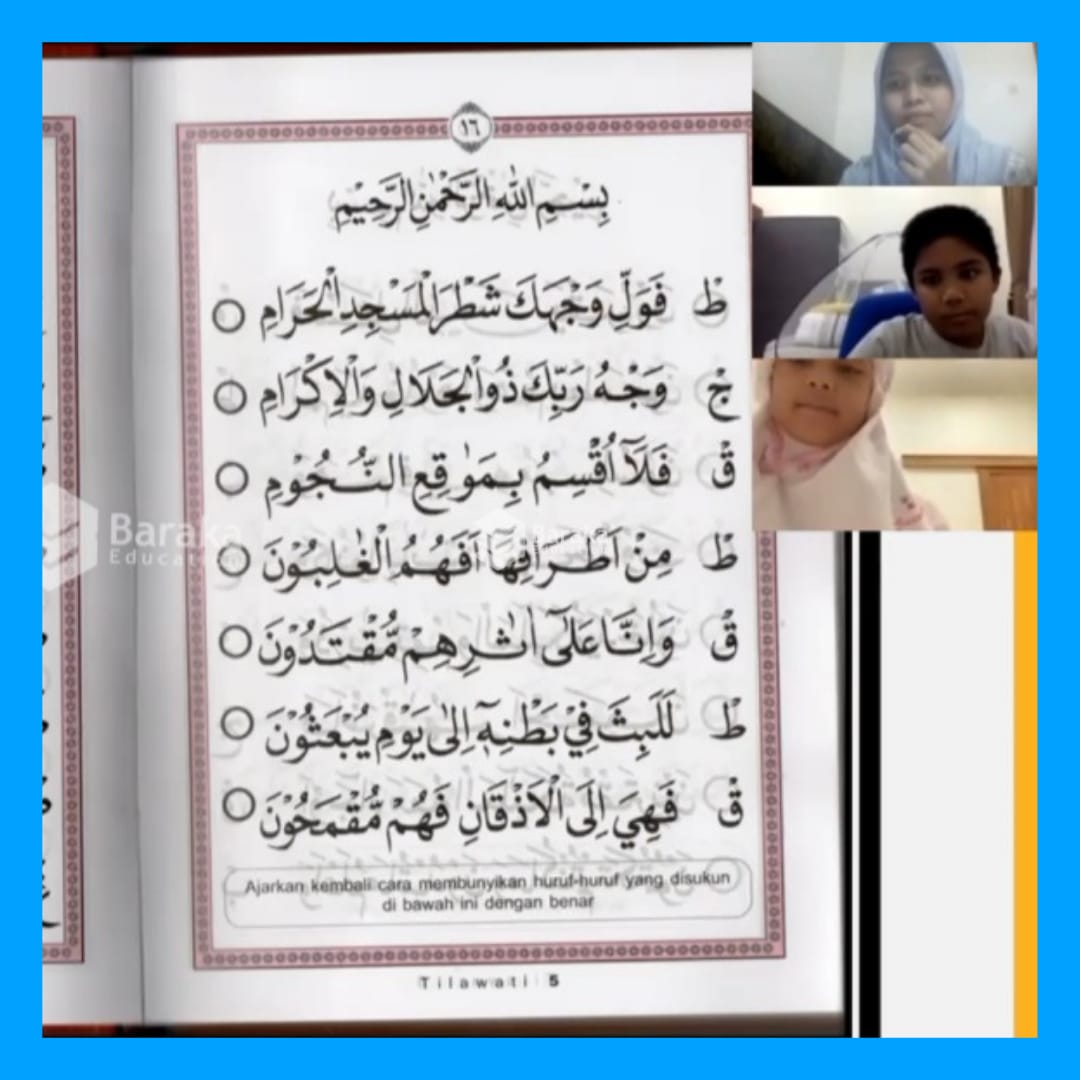 ١٦
بِسْمِ اللهِ الرَّحْمٰنِ الرَّحِيْمِ
طْ فَوَلِّ وَجْهَكَ شَطْرَ الْمَسْجِدِ الْحَرَامِ
جْ وَجْهُ رَبِّكَ ذُو الْجَلَالِ وَالْاِكْرَامِ
قْ فَلَآ اُقْسِمُ بِمَوٰقِعِ النُّجُوْمِ
طْ مِنْ اَطْرَافِهَآ اَفَهُمُ الْغٰلِبُوْنَ
قْ وَاِنَّا عَلٰٓى اٰثٰرِهِمْ مُّقْتَدُوْنَ
طْ لَلَبِثَ فِيْ بَطْنِهٖٓ اِلٰى يَوْمِ يُبْعَثُوْنَ
قْ فَهِيَ اِلَى الْاَذْقَانِ فَهُمْ مُّقْمَحُوْنَ
Baraka
Education
Ajarkan kembali cara membunyikan huruf-huruf yang disukun
di bawah ini dengan benar
Tilawati 5